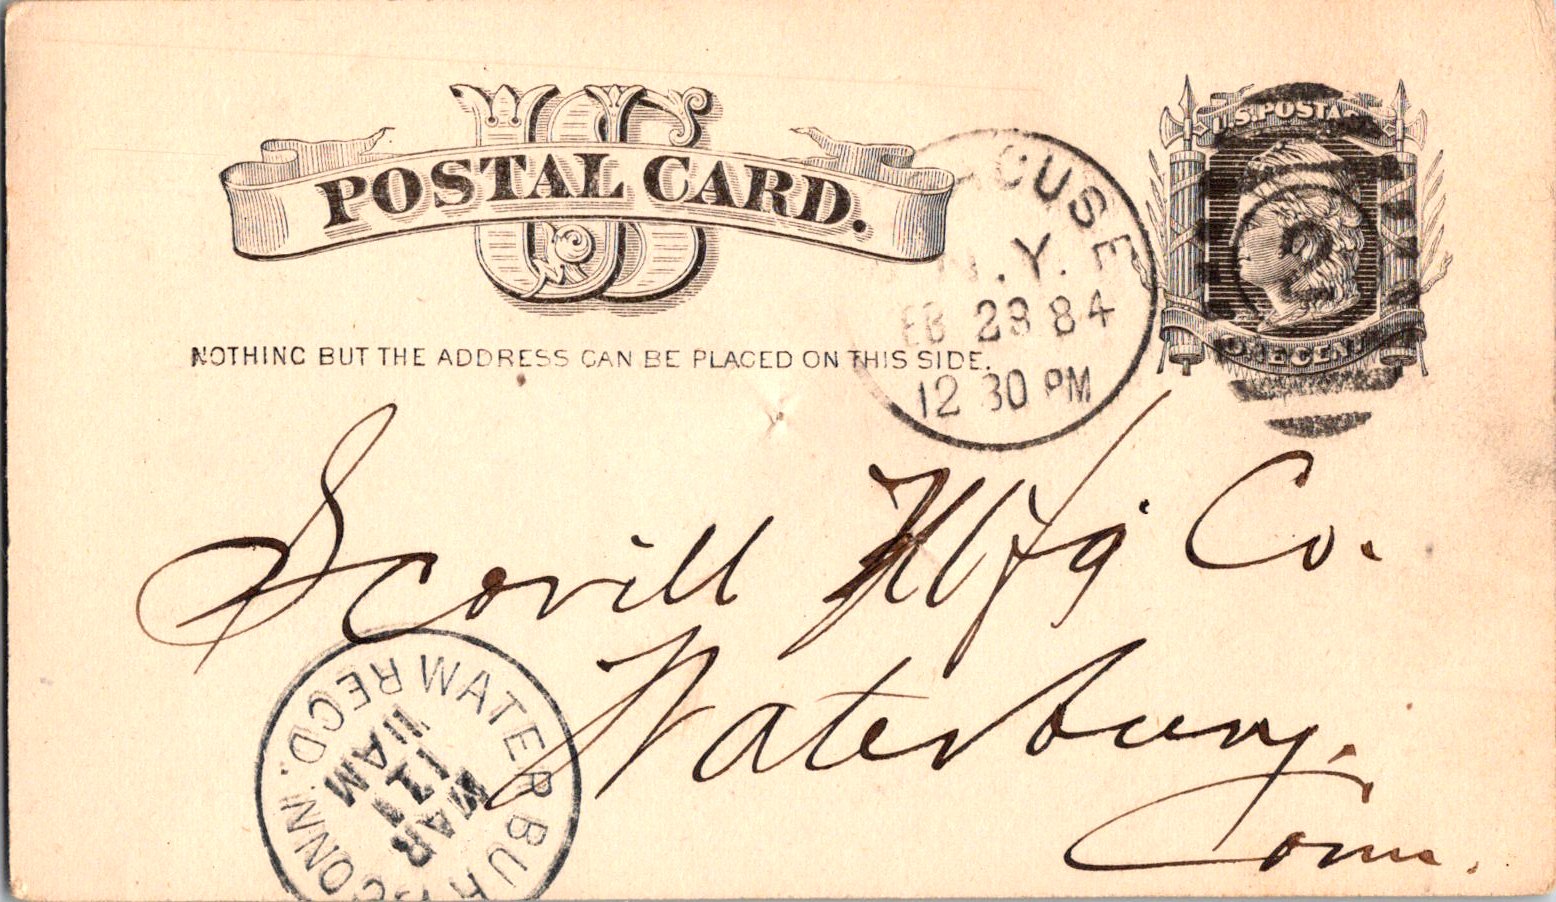 US
POSTAL CARD.
U.S. POSTA
ONE CENT
NOTHING BUT THE ADDRESS CAN BE PLACED ON THIS SIDE.
CUSE
N.Y.
EB 28 84
12 30 PM
Scovill Mfg Co.
Waterbury.
Conn.
WATERBURY CONN. REC'D.
MAR
1
11 AM